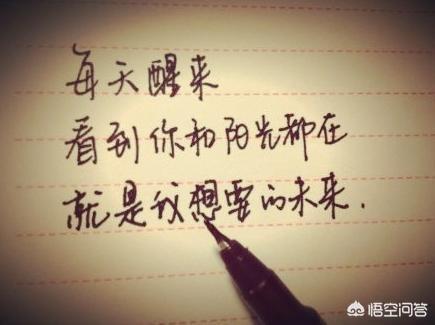 每天醒来
看到你和阳光都在
就是我想要的未来.
悟空问答